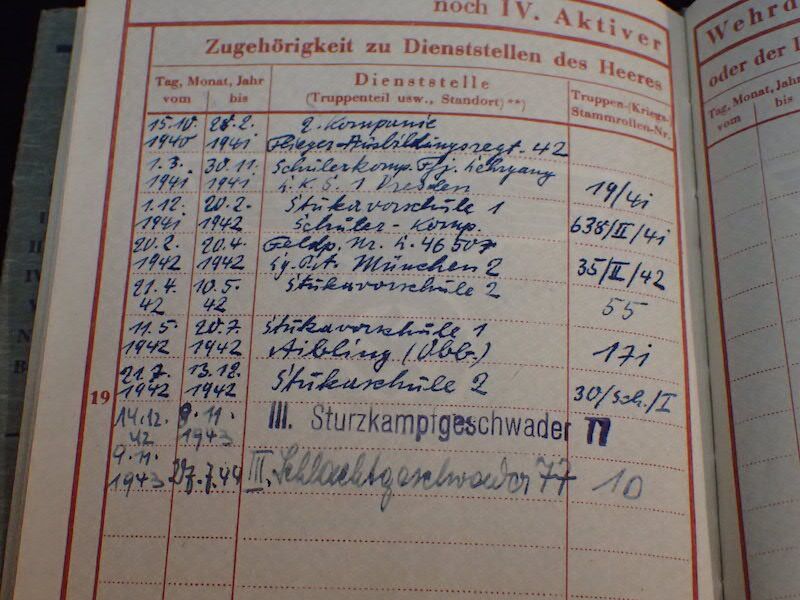 noch IV. Aktiver
Zugehörigkeit zu Dienststellen des Heeres
Tag, Monat, Jahr
vom bis
Dienststelle
(Truppenteil usw., Standort) **)
Truppen-(Kriegs-
Stammrollen-Nr.
15.10. 28.2. 2. Kompanie
1940 1941 Flieger-Ausbildungsregt. 42
1.3. 30.11. Schülerkomp. Fj. Lehrgang
1941 1941 L.K.S. 1 Dresden 19/41
1.12. 20.2. Stukavorschule 1
1941 1942 Schüler-Komp. 638/II/41
20.2. 20.4. Feldp. Nr. L. 46507
1942 1942 Lg. Pst. München 2 35/II/42
21.4. 10.5. Stukavorschule 2
42 42 55
11.5. 20.7. Stukavorschule 1
1942 1942 Aibling (Obb.) 171
21.7. 13.12. Stukaschule 2
19 1942 1942 30/Sch./I
14.12. 9.11. III. Sturzkampfgeschwader 77
42 1943
9.11.
1943 27.7.44 III. Schlachtgeschwader 77 10
Wehrd
oder der
Tag, Monat, Jahr
vom bis